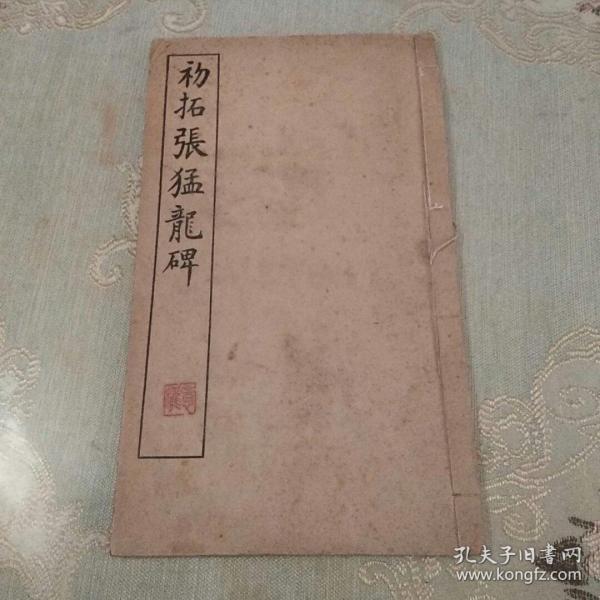 初拓張猛龍碑
孔夫子旧書网
www.kongfz.com